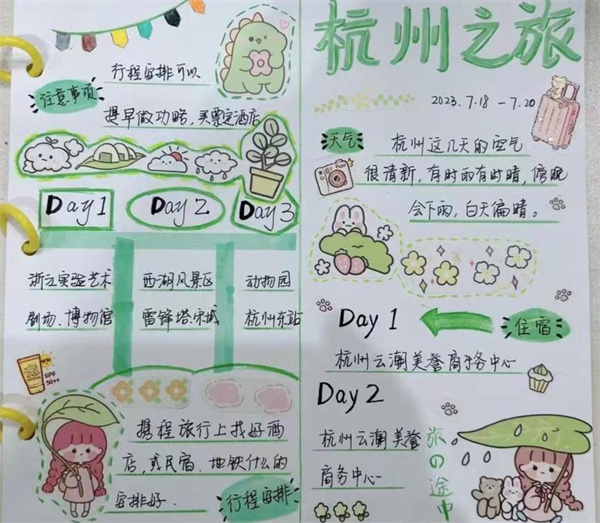 行程安排可以
注意事项
提早做功略，买票定酒店
Day1
Day2
Day3
浙江实验艺术
剧场、博物馆
西湖风景区
雷锋塔、宋城
动物园
杭州东站
SPF
50++
携程旅行上找好酒
店，或民宿、地铁什么的
安排好.
行程安排
杭州之旅
2023.7.18 — 7.20
天气
杭州这几天的空气
很清新，有时雨有时晴，傍晚
会下雨，白天偏晴。
Day 1
住宿
杭州云澜美誉商务中心
Day 2
杭州云澜美誉
商务中心
旅の途中